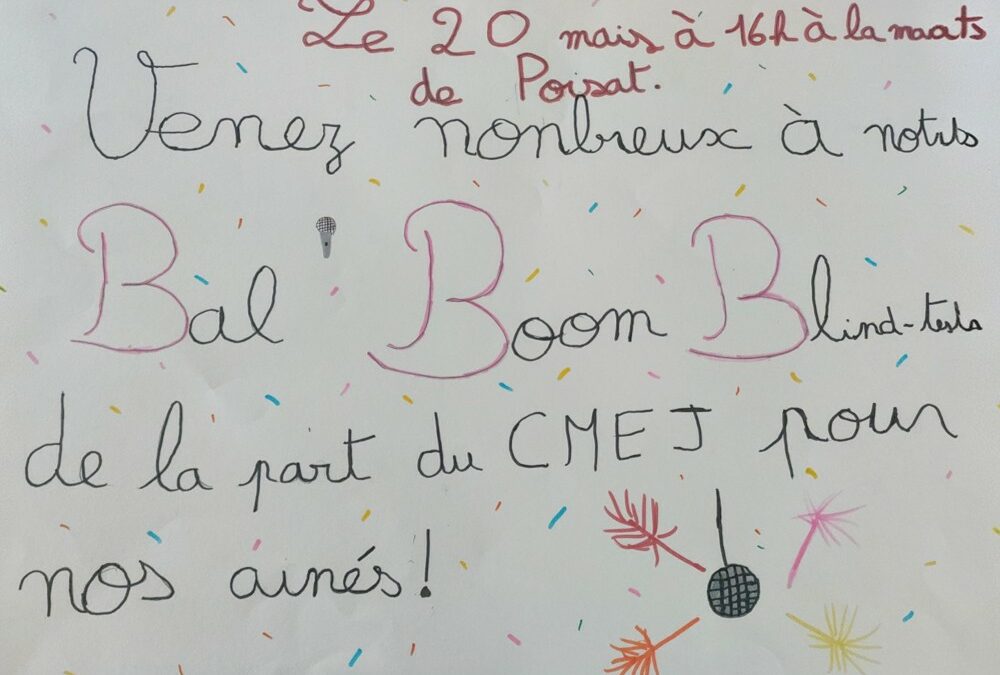 Le 20 mais à 16h à la maats
de Poisat.
Venez nonbreux à notrs
Bal Boom Blind-tests
de la part du CMEJ pour
nos ainés!